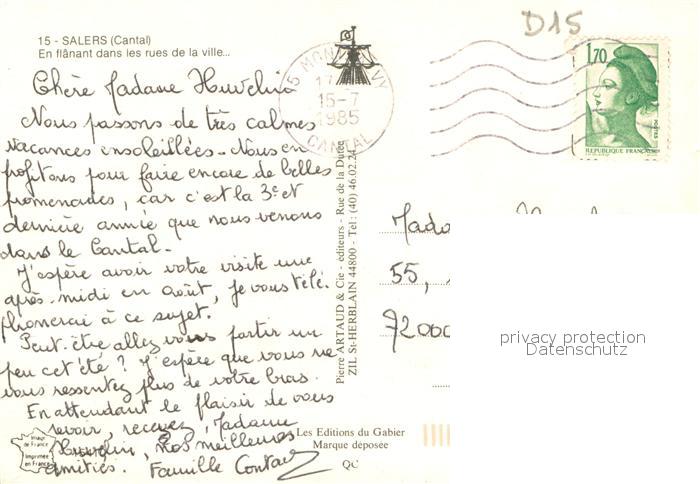 15 - SALERS (Cantal)
En flânant dans les rues de la ville...
D15
Chère Madame Huvelin
Nous passons de très calmes
vacances ensoleillées. Nous en
profitons pour faire encore de belles
promenades, car c'est la 3e et
dernière année que nous venons
dans le Cantal.
J'espère avoir votre visite une
après-midi en Août, je vous télé-
phonerai à ce sujet.
Peut-être allez vous partir un
peu cet été ? J'espère que vous ne
vous ressentez plus de votre bras.
En attendant le plaisir de vous
revoir, recevez, Madame
Huvelin, nos meilleures
amitiés. Famille
15-7
1985
CANTAL
1,70
POSTES
REPUBLIQUE FRANÇAISE
Pierre ARTAUD & Cie - éditeurs - Rue de la Durée
ZIL St-HERBLAIN 44800 - Tel: (40) 46.02.24
Mada
55,
72000
privacy protection
Datenschutz
Les Editions du Gabier
Marque déposée
QC
Image
de France
Imprimée
en France